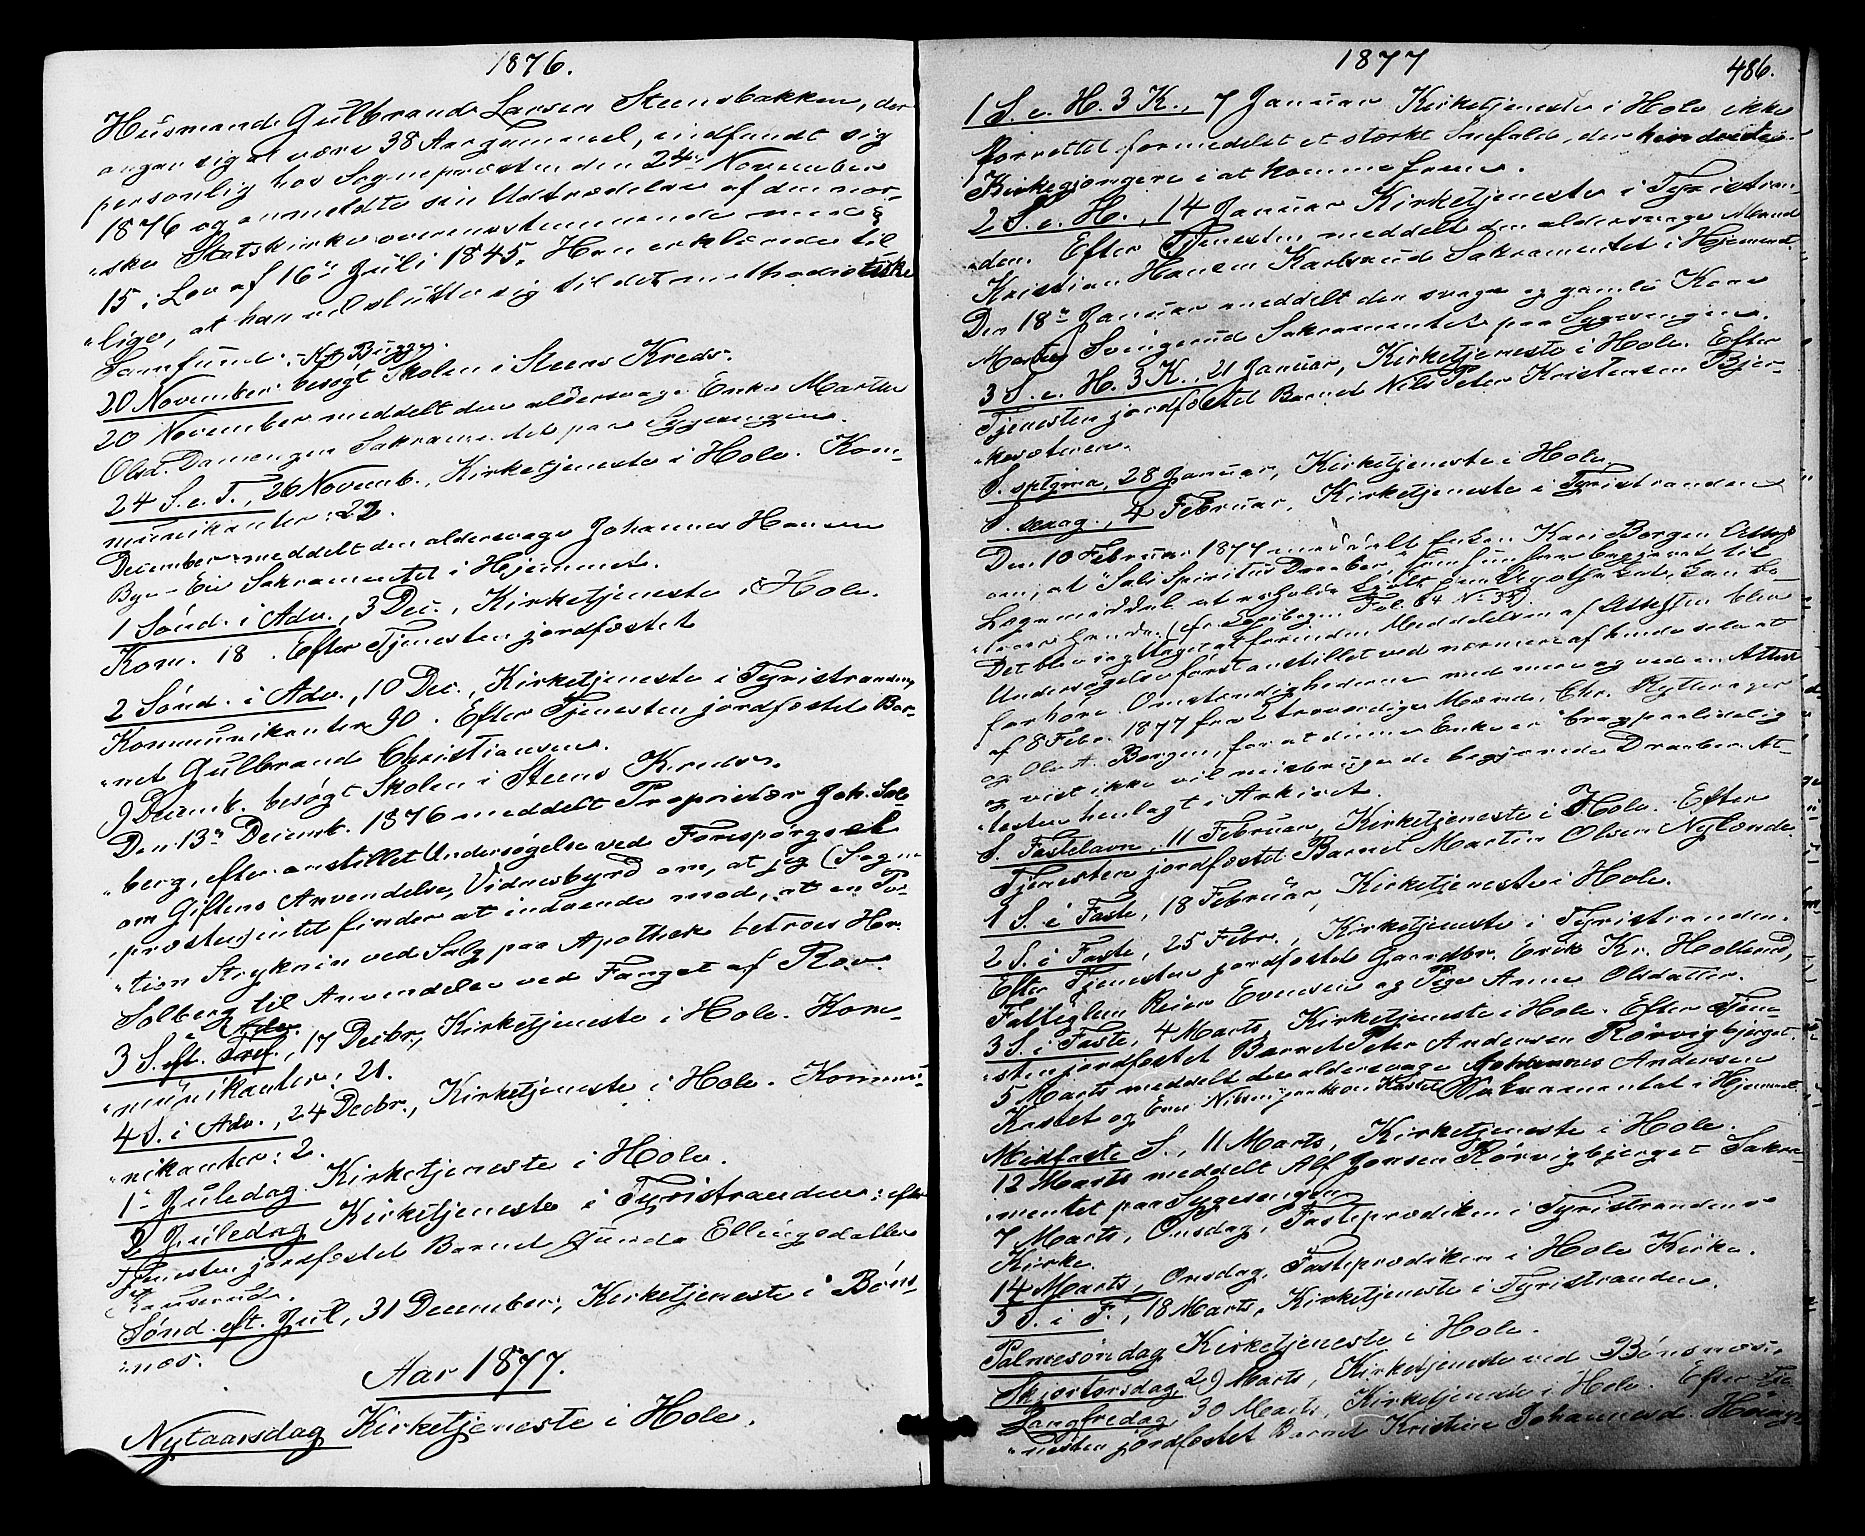 1876.
Husmand Gulbrand Larsen Steensbakken, der
angav sig at være 38 Aar gammel, indfandt sig
personlig hos Sognepræsten den 24de November
1876 og anmeldte sin Udtrædelse af den nor-
ske Statskirke overensstemmende med §
15 i Lov af 16de Juli 1845. Han erklærede til-
lige, at han vil slutte sig til det methodistiske
Samfund. Bugge.
20 November besøgt Skolen i Steens Kreds.
20 November meddelt den aldersvage Enke Marthe
Olsd. Damengen Sakramentet paa Sygesengen.
24 S. e. T., 26 Novemb., Kirketjeneste i Hole. Kom-
munikanter: 22.
December meddelt den aldersvage Johannes Hansen
Bye-Eie Sakramentet i Hjemmet.
1 Sønd. i Adv., 3 Dec., Kirketjeneste i Hole.
Kom. 18. Efter Tjenesten jordfæstet
2 Sønd. i Adv., 10 Dec., Kirketjeneste i Tyristranden
Kommunikanter 90. Efter Tjenesten jordfæstet Bar-
net Gulbrand Christiansen.
9 Decemb. besøgt Skolen i Steens Kreds.
Den 13de Decemb. 1876 meddelt Proprietær Joh. Sol-
berg, efter anstillet Undersøgelse ved Forespørgsel
om Giftens Anvendelse, Vidnesbyrd om, at jeg (Sogne-
præsten) intet finder at indvende mod, at en Por-
tion Stryknin ved Salg paa Apothek betroes Hr.
Solberg til Anvendelse ved Fanget af Ræv.
i Adv.
3 S. eft. Tref., 17 Decbr., Kirketjeneste i Hole. Kom-
munikanter: 21.
4 S. i Adv., 24 Decbr., Kirketjeneste i Hole. Kommu-
nikanter: 2.
1ste Juledag Kirketjeneste i Hole.
2 Juledag Kirketjeneste i Tyristranden; efter
Tjenesten jordfæstet Barnet Gunda Ellingsdatter

Sønd. eft. Jul, 31 December, Kirketjeneste i Bøns-
næs.
Aar 1877.
Nytaarsdag Kirketjeneste i Hole.
1877
486.
1 S. e. H. 3 K., 7 Januar Kirketjeneste i Hole ikke
forrettet formedelst et stærkt Snefald, der hindrede
Kirkegjængere i at komme frem.
2 S. e. H., 14 Januar Kirketjeneste i Tyristran-
den. Efter Tjenesten meddelt den aldersvage Mand
Kristian Hansen Karlsrud Sakramentet i Hjemmet.
Den 18de Januar meddelt den svage og gamle Kone
Marthe Svingerud Sakramentet paa Sygesengen.
3 S. e. H. 3 K., 21 Januar, Kirketjeneste i Hole. Efter
Tjenesten jordfæstet Barnet Nils Peter Kristensen Bjer-
kesæteren.
S. sptgma, 28 Januar, Kirketjeneste i Hole.
S. sexag., 4 Februar, Kirketjeneste i Tyristranden
Den 10 Februar 1877 meddelt Enken Kari Borgen Attest
om, at Sali Spiritus Draaber, som hun har begjæret til
Lægemiddel at erholde kjøbt paa Apotheket, kan be-
troes hende. (cfr. Kopibogen Fol. 64 No 35)
Det blev iagttaget at forinden Meddelelsen af Attesten blev
Undersøgelse først anstillet ved nærmere af hende selv at
forhøre Omstændighederne med mere og ved en Attest
af 8 Febr. 1877 fra 2 troværdige Mænd, Chr. Rytterager
og Ole A. Borgen, for at denne Enke er brav, paalidelig
og vist ikke vil misbruge de begjærede Draaber. At-
testen henlagt i Arkivet.
S. Fastelavn, 11 Februar, Kirketjeneste i Hole. Efter
Tjenesten jordfæstet Barnet Martin Olsen Nylænde
1 S. i Faste, 18 Februar, Kirketjeneste i Hole.
2 S. i Faste, 25 Febr., Kirketjeneste i Tyristranden.
Efter Tjenesten jordfæstet Gaardbr. Erik Kr. Hollerud,
Fattiglem Reier Evensen og Pige Anne Olsdatter.
3 S. i Faste, 4 Marts, Kirketjeneste i Hole. Efter Tjene-
sten jordfæstet Barnet Peter Andersen Rørvigbjerget.
5 Marts meddelt den aldersvage Johannes Andersen
Kastet og Ener Nilsen paa Kastet Sakramentet i Hjemmet.
Midfaste S., 11 Marts, Kirketjeneste i Hole.
12 Marts meddelt Alf Jonsen Rørvigbjerget Sakra-
mentet paa Sygesengen
7 Marts, Onsdag, Fasteprædiken i Tyristrandens
Kirke.
14 Marts, Onsdag, Fasteprædiken i Hole Kirke.
5 S. i F., 18 Marts, Kirketjeneste i Tyristranden.
Palmesøndag Kirketjeneste i Hole.
Skjærtorsdag 29 Marts, Kirketjeneste ved Bønsnæs.
Langfredag 30 Marts, Kirketjeneste i Hole. Efter Tje-
nesten jordfæstet Barnet Kristine Johannesd.